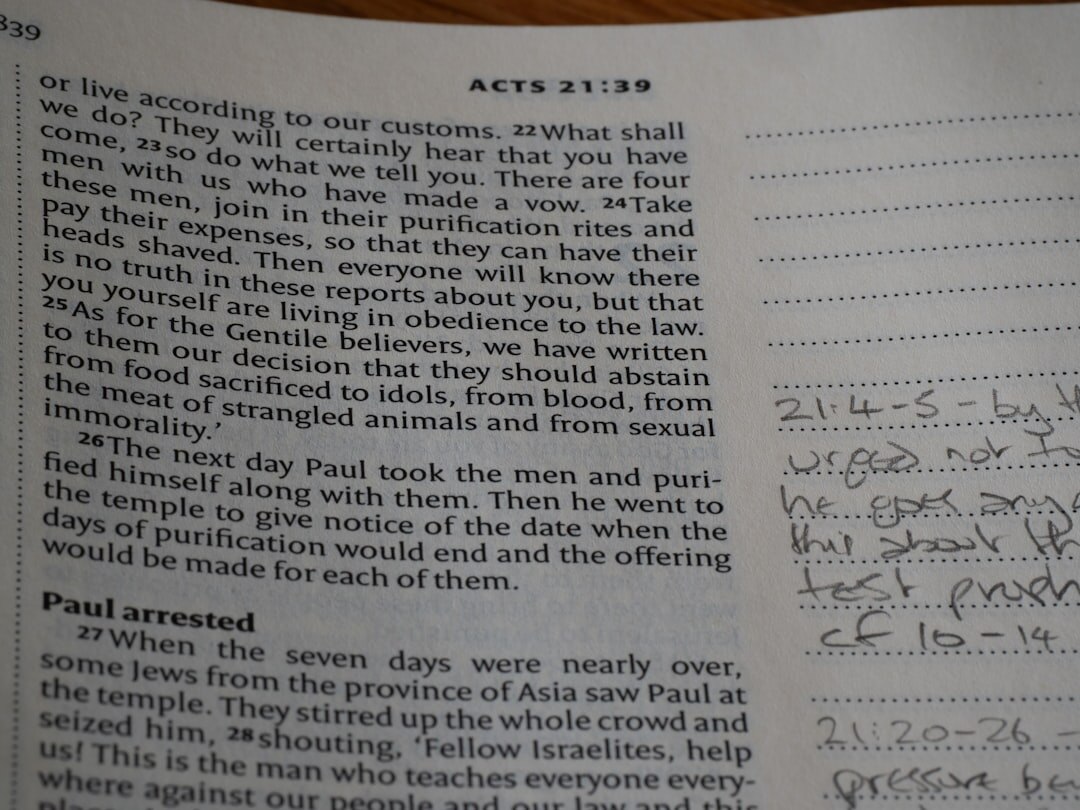 839
ACTS 21:39
or live according to our customs. 22 What shall
we do? They will certainly hear that you have
come, 23 so do what we tell you. There are four
men with us who have made a vow. 24 Take
these men, join in their purification rites and
pay their expenses, so that they can have their
heads shaved. Then everyone will know there
is no truth in these reports about you, but that
you yourself are living in obedience to the law.
25 As for the Gentile believers, we have written
to them our decision that they should abstain
from food sacrificed to idols, from blood, from
the meat of strangled animals and from sexual
immorality.'
26 The next day Paul took the men and puri-
fied himself along with them. Then he went to
the temple to give notice of the date when the
days of purification would end and the offering
would be made for each of them.
Paul arrested
27 When the seven days were nearly over,
some Jews from the province of Asia saw Paul at
the temple. They stirred up the whole crowd and
seized him, 28 shouting, 'Fellow Israelites, help
us! This is the man who teaches everyone every-
where against our people and our law and this
21:4-5 - by
urged not
he goes
this about
test
cf 10-14
21:20-26 -
pressure